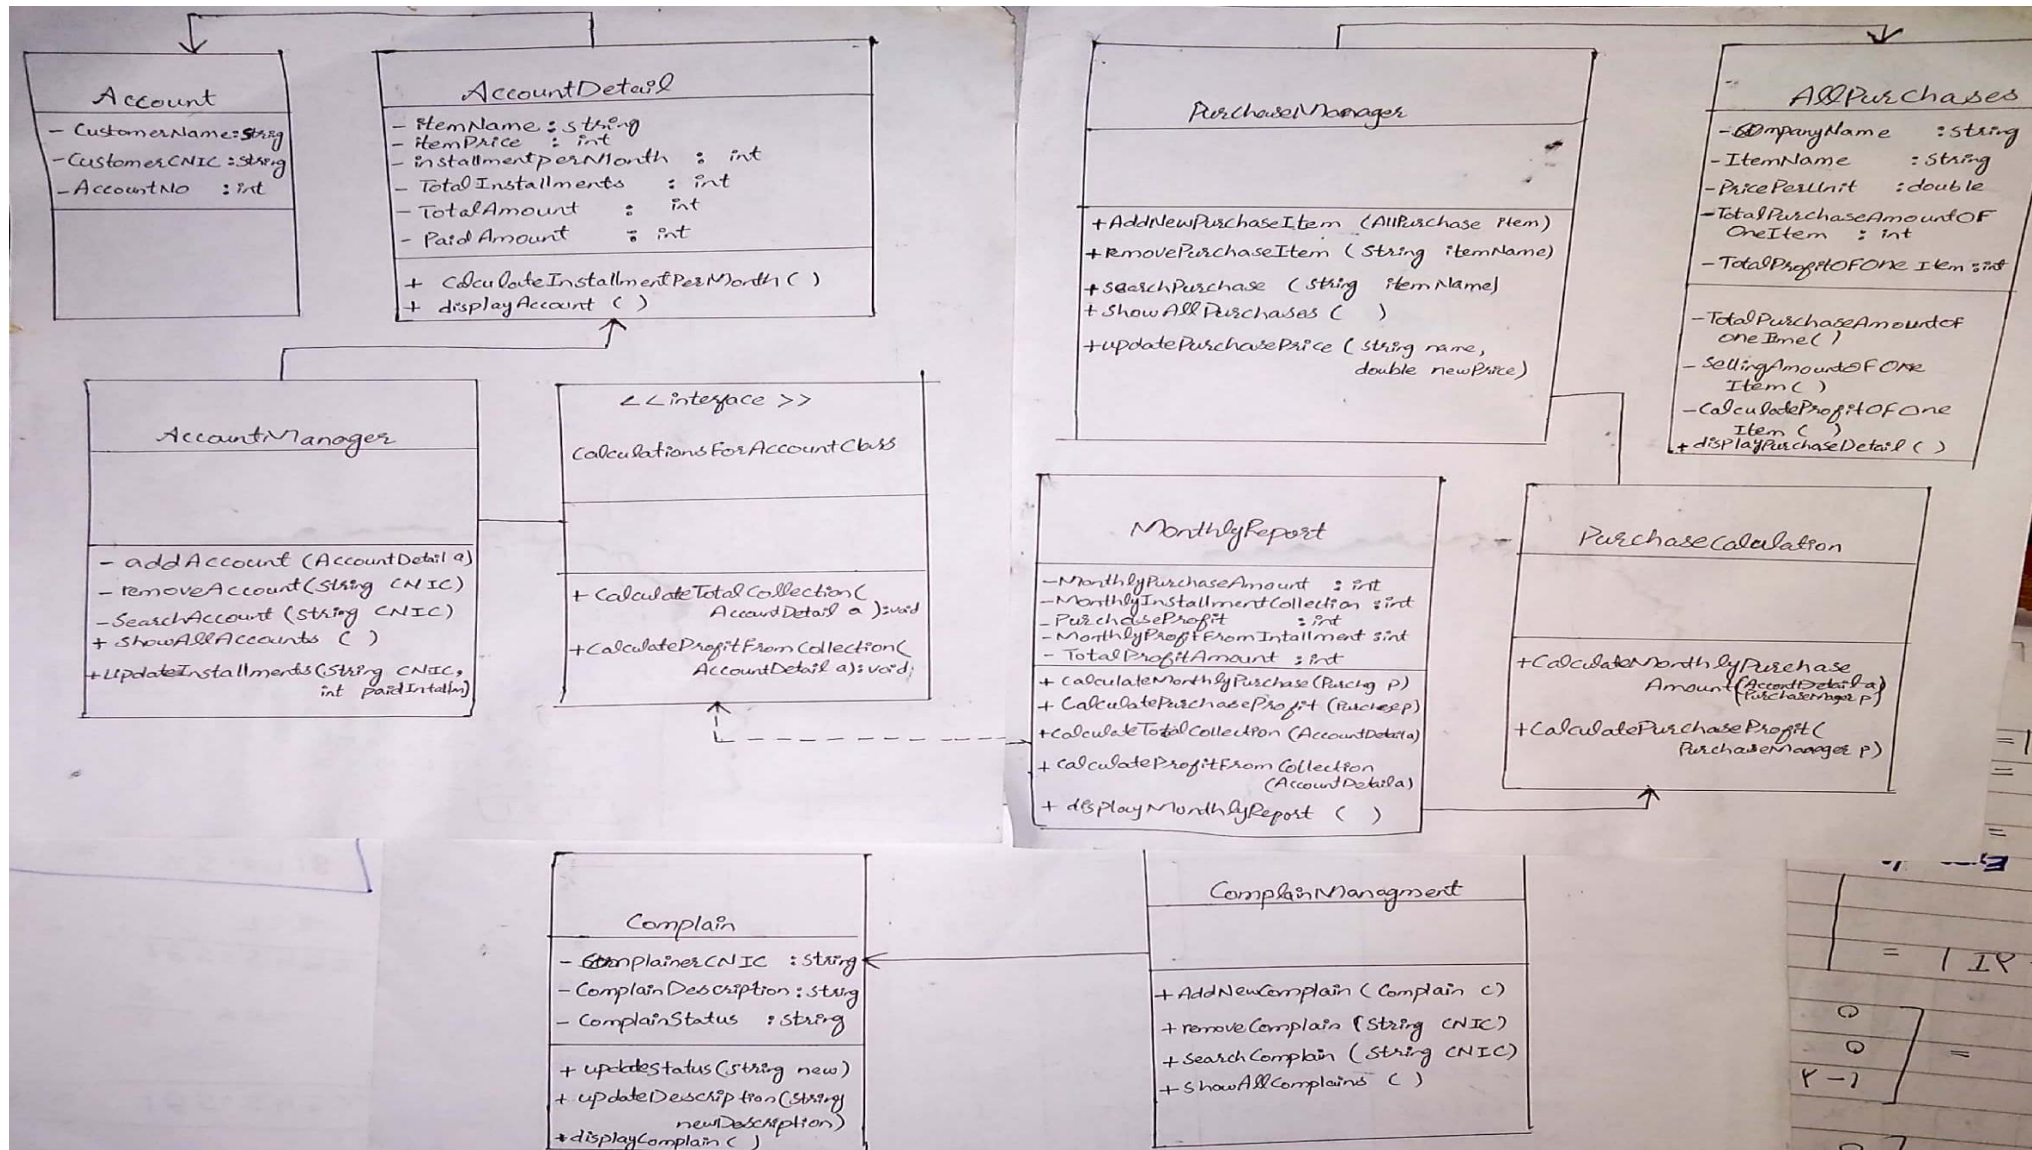 Account
- CustomerName : String
- CustomerCNIC : String
- AccountNo : int
AccountDetail
- itemName : string
- itemPrice : int
- installmentperMonth : int
- TotalInstallments : int
- TotalAmount : int
- PaidAmount : int
+ CalculateInstallmentPerMonth ( )
+ displayAccount ( )
AccountManager
- addAccount (AccountDetail a)
- removeAccount (String CNIC)
- SearchAccount (String CNIC)
+ ShowAllAccounts ( )
+ UpdateInstallments (String CNIC,
int paidIntallm)
<<interface>>
CalculationsForAccountClass
+ CalculateTotalCollection(
AccountDetail a ):void
+ CalculateProfitFromCollection(
AccountDetail a):void;
PurchaseManager
+ AddNewPurchaseItem (AllPurchase item)
+ removePurchaseItem (String itemName)
+ searchPurchase (String itemName)
+ ShowAllPurchases ( )
+ updatePurchasePrice (String name,
double newPrice)
AllPurchases
- CompanyName : string
- ItemName : String
- PricePerUnit : double
- TotalPurchaseAmountOF
OneItem : int
- TotalProfitOFOne Item : int
- TotalPurchaseAmountof
oneIme( )
- SellingAmountOFOne
Item ( )
- CalculateProfitOFOne
Item ( )
+ displayPurchaseDetail ( )
MonthlyReport
- MonthlyPurchaseAmount : int
- MonthlyInstallmentCollection : int
- PurchaseProfit : int
- MonthlyProfitFromIntallment : int
- TotalProfitAmount : int
+ CalculateMonthlyPurchase (Purchg P)
+ CalculatePurchaseProfit (Purchesep)
+ CalculateTotalCollection (AccountDetail a)
+ CalculateProfitFromCollection
(AccountDetail a)
+ displayMonthlyReport ( )
PurchaseCalculation
+ CalculateMonthlyPurchase
Amount (AccontDetail a)
(PurchaseMager P)
+ CalculatePurchaseProfit(
PurchaseManager P)
Complain
- ComplainerCNIC : String
- ComplainDescription : string
- ComplainStatus : String
+ updateStatus (String new)
+ updateDescription (String
newDescription)
+ displayComplain ( )
ComplainManagment
+ AddNewComplain (Complain c)
+ removeComplain (String CNIC)
+ SearchComplain (String CNIC)
+ ShowAllComplains ( )